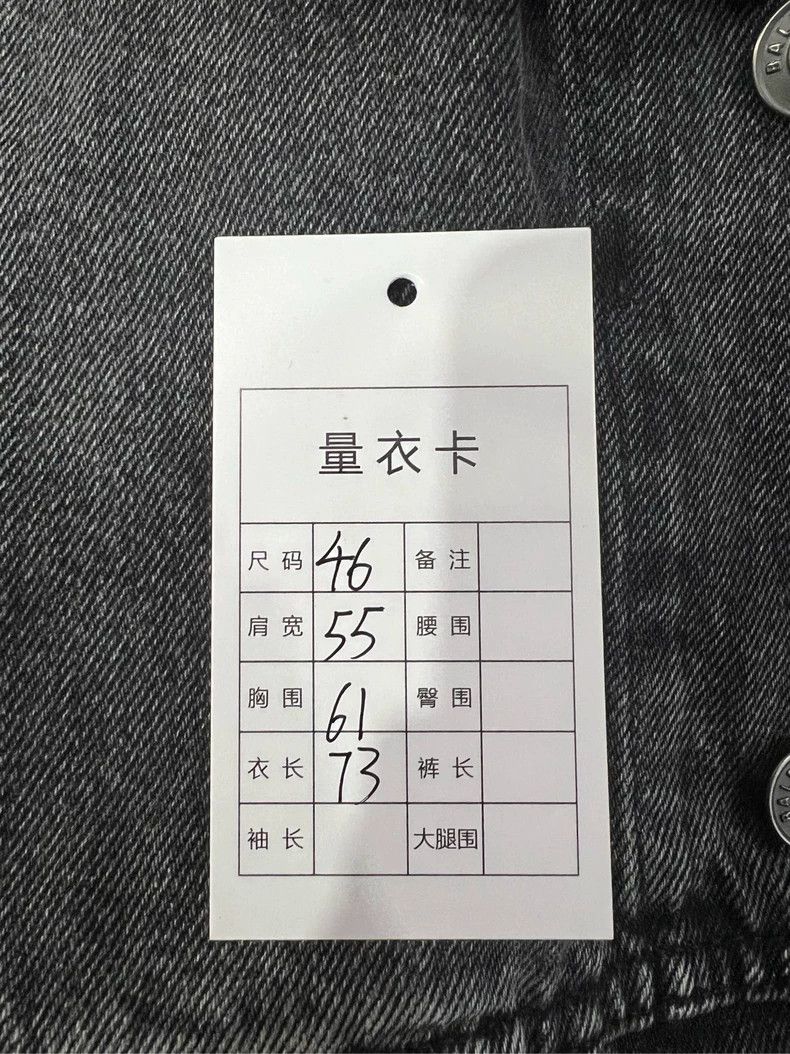 量衣卡
尺码 46 备注
肩宽 55 腰围
胸围 61 臀围
衣长 73 裤长
袖长 大腿围
BAL
BALE